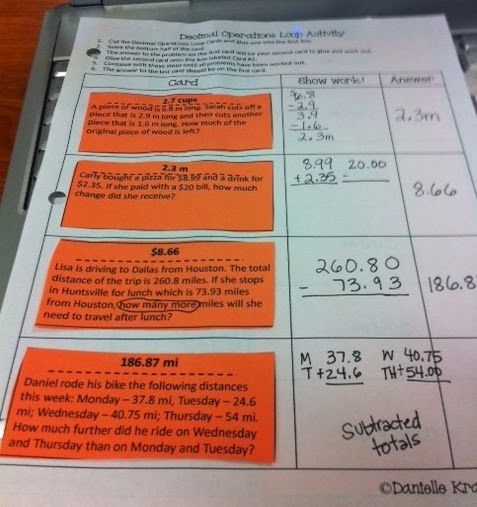 Decimal Operations Loop Activity
1. Cut the Decimal Operations Loop Cards and glue one into the first box.
2. Solve the bottom half of the card.
The answer to the problem on the first card will be your second card to glue and work out.
4. Glue the second card onto the box labeled Card #2.
5. Continue with these steps until all problems have been worked out.
6. The answer to the last card should be on the first card.
Card Show work! Answer
2.7 cups
A piece of wood is 6.8 m long. Sarah cuts off a
piece that is 2.9 m long and then cuts another
piece that is 1.6 m long. How much of the
original piece of wood is left?
6.8
- 2.9
3.9
- 1.6
2.3m
2.3m
2.3 m
Carly bought a pizza for $8.99 and a drink for
$2.35. If she paid with a $20 bill, how much
change did she receive?
8.99 20.00
+2.35 -
8.66
$8.66
Lisa is driving to Dallas from Houston. The total
distance of the trip is 260.8 miles. If she stops
in Huntsville for lunch which is 73.93 miles
from Houston, how many more miles will she
need to travel after lunch?
260.80
- 73.93
186.8
186.87 mi
Daniel rode his bike the following distances
this week: Monday – 37.8 mi, Tuesday – 24.6
mi; Wednesday – 40.75 mi; Thursday – 54 mi.
How much further did he ride on Wednesday
and Thursday than on Monday and Tuesday?
M 37.8 W 40.75
T +24.6 TH +54.00
Subtracted
totals
©Danielle Kra